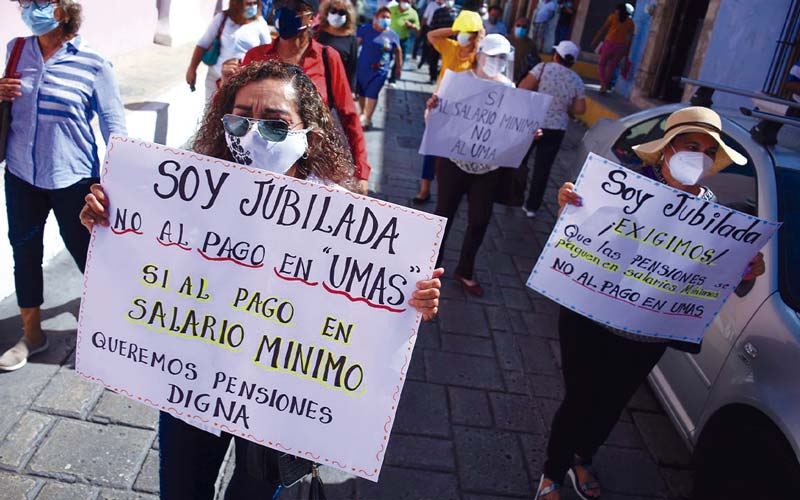 SOY JUBILADA
NO AL PAGO EN "UMAS"
SI AL PAGO EN
SALARIO MINIMO
QUEREMOS PENSIONES
DIGNA
SI
AL SALARIO MINIMO
NO
AL UMA
Soy Jubilada
¡EXIGIMOS!
Que las PENSIONES se
paguen en salarios Mínimos
NO AL PAGO EN UMAS